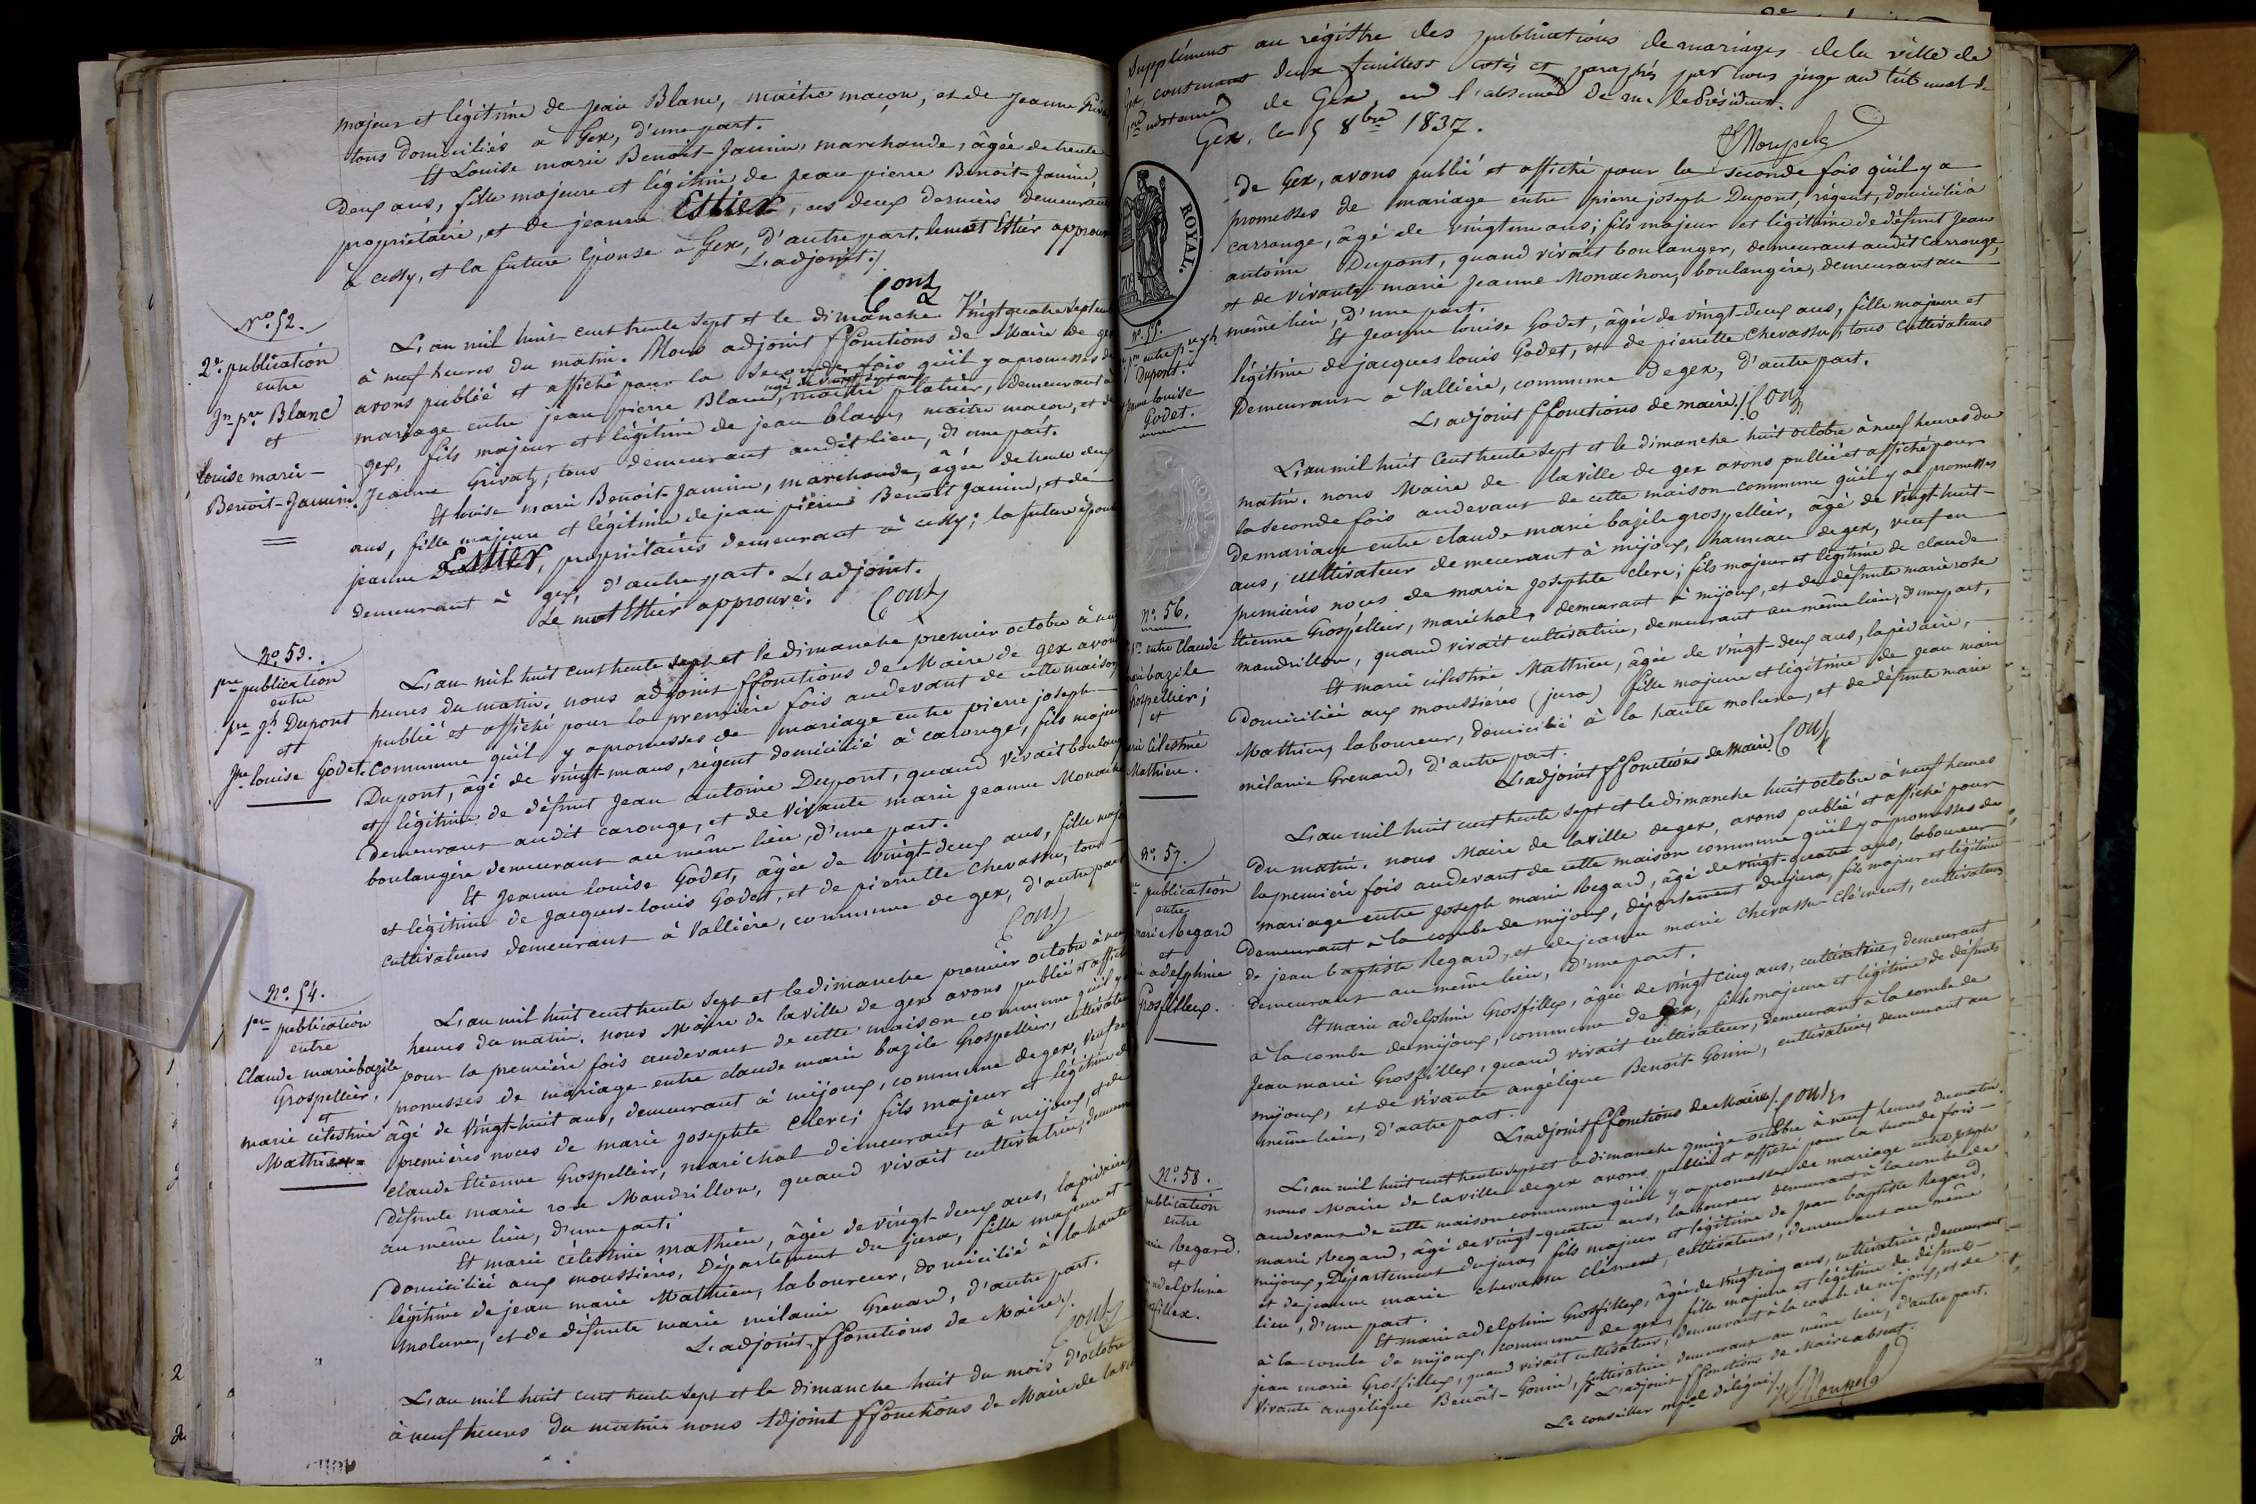 majeur et légitime de jean Blanc, maître maçon, et de Jeanne
tous domiciliés à Gex, d'une part.
Et Louise marie Benoit-Jannin, marchande, âgée de trente
deux ans, fille majeure et légitime de jean pierre Benoit-Jannin,
propriétaire, et de jeanne Estier, ces deux derniers demeurant
à cessy, et la future Epouse à Gex, d'autre part. le mot Estier approuvé
L'adjoint./
Nº. 52.
2e. publication
entre
Jn. pre. Blanc
et
louise marie
Benoit-Jannin.
L'an mil huit cent trente sept et le dimanche Vingt quatre Septembre
à neuf heures du matin. Nous adjoint ffonctions de Maire de gex
avons publié et affiché pour la seconde fois qu'il y a promesses de
mariage entre jean pierre Blanc, maître platrier, demeurant à
gex, fils majeur et légitime de jean blanc, maître maçon, et de
Jeanne Grivat, tous demeurant audit lieu, d'une part.
Et louise marie Benoit-Jannin, marchande, âgée de trente deux
ans, fille majeure et légitime de jean pierre Benoit Jannin, et de
jeanne Estier, propriétaires demeurant à cessy; la future épouse
demeurant à gex, d'autre part. L'adjoint.
Le mot Estier approuvé.
Nº. 53.
1ere publication
entre
pre. jh. Dupont
et
Jne. louise Godet.
L'an mil huit cent trente sept et le dimanche premier octobre à neuf
heures du matin. nous adjoint ffonctions de Maire de gex avons
publié et affiché pour la première fois audevant de cette maison
commune qu'il y a promesses de mariage entre pierre joseph
Dupont, âgé de vingt-un ans, régent domicilié à carouge, fils majeur
et légitime de défunt Jean antoine Dupont, quand vivait boulanger
demeurant audit carouge, et de vivante marie Jeanne Monachon
boulangère demeurant au même lieu, d'une part.
Et Jeanne louise Godet, âgée de vingt-deux ans, fille majeure
et légitime de Jacques-louis Godet, et de pierrette Chevassu, tous
cultivateurs demeurant à Vallière, commune de gex, d'autre part
Nº. 54.
1ere publication
entre
Claude marie bazile
Grospellier,
et
marie célestine
Mathieu
L'an mil huit cent trente sept et le dimanche premier octobre à neuf
heures du matin. nous Maire de la ville de gex avons publié et affiché
pour la première fois audevant de cette maison commune qu'il y a
promesses de mariage entre claude marie bazile Grospellier, cultivateur
âgé de Vingt-huit ans, demeurant à mijoux, commune de gex, veuf en
premières noces de marie josephte Clerc; fils majeur et légitime de
claude Etienne Grospellier, maréchal demeurant à mijoux, et de
défunte marie rose Mandrillon, quand vivait cultivatrice, demeurant
au même lieu, d'une part;
Et marie célestine mathieu, âgée de vingt-deux ans, lapidaire,
domiciliée aux moussières, Département du jura, fille majeure et
légitime de jean marie Mathieu, laboureur, domicilié à la haute
molune, et de défunte marie mélanie Grenard, d'autre part.
L'adjoint ffonctions de Maire./.
L'an mil huit cent trente sept et le dimanche huit du mois d'octobre
à neuf heures du matin nous Adjoint ffonctions de Maire de la ville
Supplément au régistre des publications de mariages de la ville de
Gex, contenant deux feuillets cotés et paraphés par nous juge au tribunal de
1ere instance de Gex, en l'absence de mr. le Président.
Gex, le 5 8bre 1837.
ROYAL.
de Gex, avons publié et affiché pour la seconde fois qu'il y a
promesses de mariage entre pierre joseph Dupont, régent, domicilié à
carrouge, âgé de vingt un ans; fils majeur et légitime de défunt Jean
antoine Dupont, quand vivait boulanger, demeurant audit Carrouge,
et de vivante marie Jeanne Monachon, boulangère, demeurant au
même lieu, d'une part.
Et Jeanne louise Godet, âgée de vingt-deux ans, fille majeure et
légitime de jacques louis Godet, et de pierrette Chevassu, tous cultivateurs
Demeurant à Vallière, commune de gex, d'autre part.
L'adjoint ffonctions de maire./.
Nº. 55.
Dupont.
louise
Godet.
L'an mil huit Cent trente sept et le dimanche huit octobre à neuf heures du
matin. nous Maire de la ville de gex avons publié et affiché pour
la seconde fois audevant de cette maison commune qu'il y a promesses
de mariage entre claude marie bazile grospellier, âgé de vingt-huit
ans, cultivateur demeurant à mijoux, hameau de gex, veuf en
premières noces de marie josephte clerc; fils majeur et légitime de claude
Etienne Grospellier, maréchal, demeurant à mijoux, et de défunte marie rose
mandrillon, quand vivait cultivatrice, demeurant au même lieu, d'une part,
Et marie célestine Mathieu, âgée de vingt-deux ans, lapidaire,
domiciliée aux moussières (jura) fille majeure et légitime de jean marie
Mathieu, laboureur, domicilié à la haute molune, et de défunte marie
mélanie Grenard, d'autre part.
L'adjoint ffonctions de Maire
Nº. 56.
entre Claude
bazile
Grospellier;
et
célestine
Mathieu.
L'an mil huit cent trente sept et le dimanche huit octobre à neuf heures
du matin. nous Maire de la ville de gex, avons publié et affiché pour
la première fois audevant de cette maison commune qu'il y a promesses de
mariage entre joseph marie Regard, âgé de vingt-quatre ans, laboureur
demeurant à la combe de mijoux, département du jura, fils majeur et légitime
de jean baptiste Regard, et de jeanne marie Chevassu-Clément, cultivateurs
demeurant au même lieu, d'une part.
Et marie adelphine Grosfillex, âgée de vingt cinq ans, cultivatrice, demeurant
à la combe de mijoux, commune de Gex, fille majeure et légitime de défunt
Jean marie Grosfillex, quand vivait cultivateur, demeurant à la combe de
mijoux, et de vivante angélique Benoit Gonin, cultivatrice, demeurant au
même lieu, d'autre part.
L'adjoint ffonctions de Maire./.
Nº. 57.
publication
entre
marie Regard
et
adelphine
Grosfillex.
L'an mil huit cent trente sept et le dimanche quinze octobre à neuf heures du matin.
nous Maire de la ville de gex avons publié et affiché pour la seconde fois
audevant de cette maison commune qu'il y a promesses de mariage entre joseph
marie Regard, âgé de vingt-quatre ans, laboureur demeurant à la combe de
mijoux, Département du jura, fils majeur et légitime de Jean baptiste Regard,
et de jeanne marie chevassu clément, cultivateurs, demeurant au même
lieu, d'une part.
Et marie adelphine Grosfillex, âgée de vingt cinq ans, cultivatrice, demeurant
à la combe de mijoux, commune de gex, fille majeure et légitime de défunt
jean marie Grosfillex, quand vivait cultivateur, demeurant à la combe de mijoux, et de
vivante angélique Benoit-Gonin, cultivatrice demeurant au même lieu, d'autre part.
Pr L'adjoint ffonctions de Maire absent.
Le conseiller mpal délégué/.
Nº. 58.
publication
entre
marie Regard.
et
adelphine